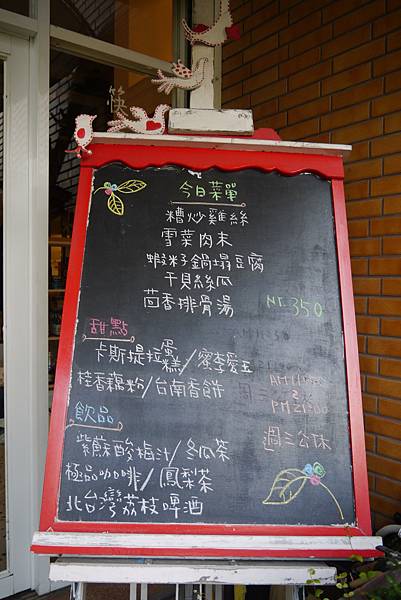 筷
今日菜單
糟炒雞絲
雪菜肉末
蝦籽鍋塌豆腐
干貝絲瓜
茴香排骨湯 NT.350
甜點
卡斯提拉蛋糕/蜜李愛玉
桂香藕粉/台南香餅
AM11:00
PM21:00
週三公休
飲品
紫蘇酸梅汁/冬瓜茶
極品咖啡/鳳梨茶
北台灣荔枝啤酒